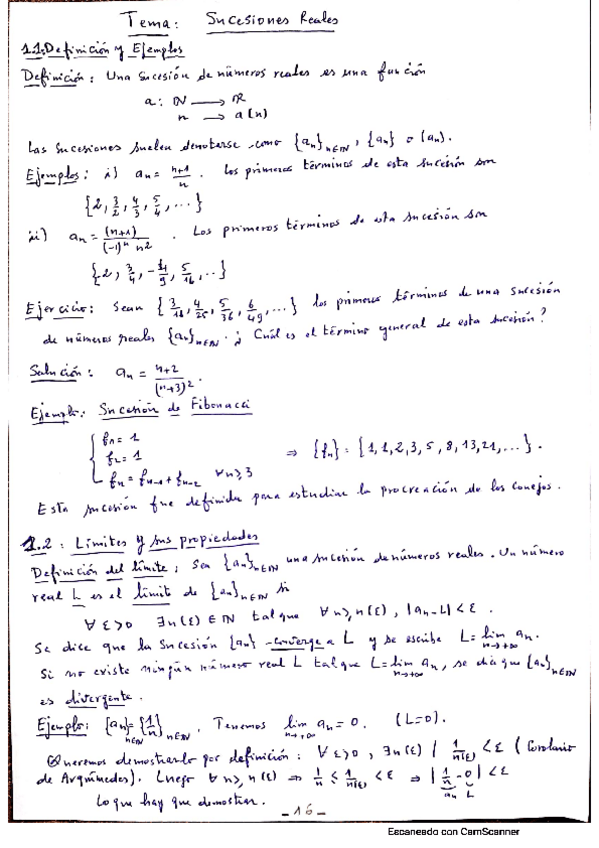 Tema: Sucesiones Reales
1.1: Definición y Ejemplos
Definición: Una sucesión de números reales es una función
a: ℕ ⟶ ℝ
n ⟶ a(n)
Las sucesiones suelen denotarse como {aₙ}ₙ∈ℕ, {aₙ} o (aₙ).
Ejemplos: i) aₙ = (n+1)/n. Los primeros términos de esta sucesión son
{2, 3/2, 4/3, 5/4, ...}
ii) aₙ = (n+1)/((-1)ⁿ n²). Los primeros términos de esta sucesión son
{-2, 3/4, -4/9, 5/16, ...}
Ejercicio: Sean {3/16, 4/25, 5/36, 6/49, ...} los primeros términos de una sucesión
de números reales {aₙ}ₙ∈ℕ. ¿Cuál es el término general de esta sucesión?
Solución: aₙ = (n+2)/(n+3)².
Ejemplo: Sucesión de Fibonacci
f₁ = 1
f₂ = 1 ⇒ {fₙ} = {1,1,2,3,5,8,13,21,...}.
fₙ = fₙ₋₁ + fₙ₋₂ ∀n≥3
Esta sucesión fue definida para estudiar la procreación de los conejos.
1.2: Límites y sus propiedades
Definición del límite: Sea {aₙ}ₙ∈ℕ una sucesión de números reales. Un número
real L es el límite de {aₙ}ₙ∈ℕ si
∀ε>0 ∃n(ε)∈ℕ tal que ∀n≥n(ε), |aₙ-L|<ε.
Se dice que la sucesión {aₙ} converge a L y se escribe L = lim n→+∞ aₙ.
Si no existe ningún número real L tal que L = lim n→+∞ aₙ, se dice que {aₙ}ₙ∈ℕ
es divergente.
Ejemplo: {aₙ}ₙ∈ℕ = {1/n}ₙ∈ℕ. Tenemos lim n→+∞ aₙ = 0. (L=0).
Queremos demostrarlo por definición: ∀ε>0, ∃n(ε) | 1/n(ε) < ε (Corolario
de Arquímedes). Luego ∀n≥n(ε) ⇒ 1/n ≤ 1/n(ε) < ε ⇒ |1/n - 0| < ε
aₙ L
Lo que hay que demostrar.
-16-
Escaneado con CamScanner